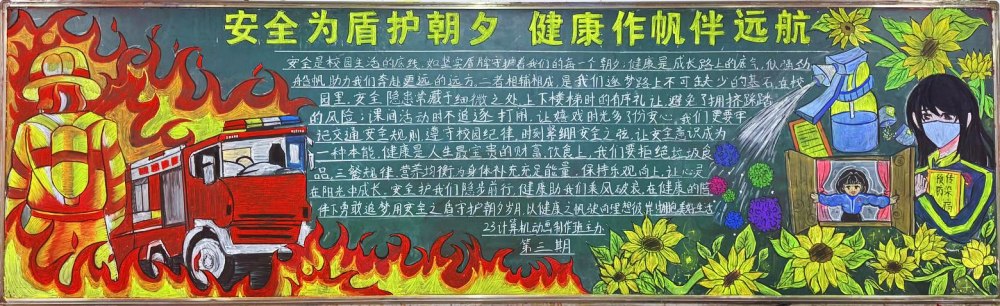 安全为盾护朝夕 健康作帆伴远航
安全是校园生活的底线,如坚实盾牌守护着我们的每一个朝夕,健康是成长路上的底气,似
船帆,助力我们奔赴更远的远方,二者相辅相成,是我们逐梦路上不可缺少的基石,在校
园里,安全隐患常藏于细微之处,上下楼梯时的有序礼让,避免了拥挤踩踏
的风险;课间活动时不追逐打闹,让嬉戏时光多了份安心,我们更要牢
记交通安全规则,遵守校园纪律,时刻紧绷安全之弦,让安全意识成为
一种本能,健康是人生最宝贵的财富,饮食上,我们要拒绝垃圾食
品,三餐规律,营养均衡,为身体补充充足能量,保持乐观向上,让心灵
在阳光中成长,安全护我们稳步前行,健康助我们乘风破浪,在健康的
伴下勇敢追梦,用安全之盾守护朝夕岁月,以健康之帆驶向理想彼岸,拥抱美好生活
23计算机动画制作班主办
第三期
预防
传染病